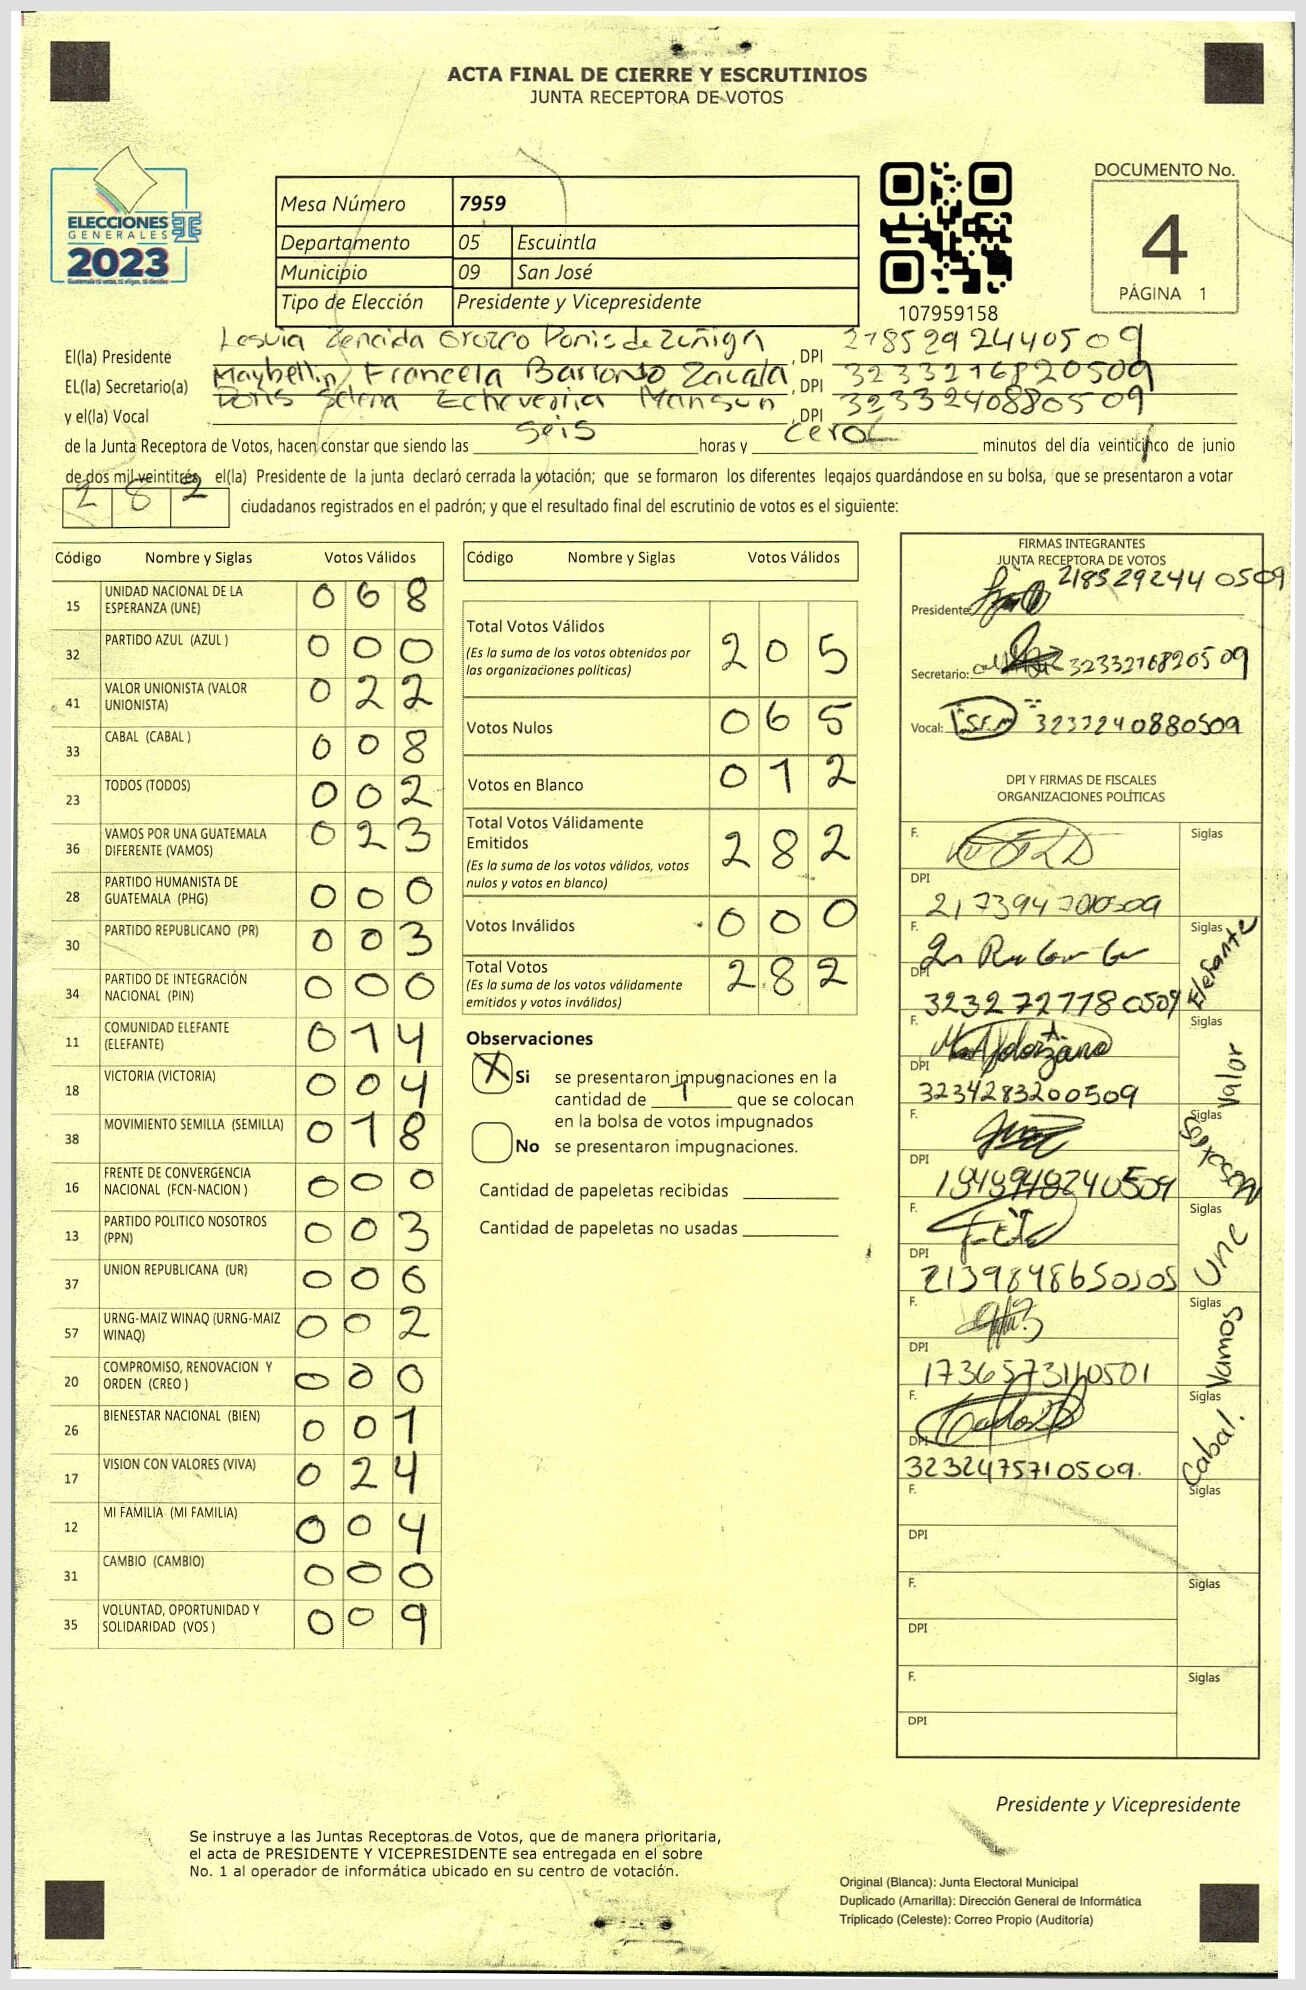 ACTA FINAL DE CIERRE Y ESCRUTINIOS
JUNTA RECEPTORA DE VOTOS
ELECCIONES
GENERALES
2023
Mesa Número 7959
Departamento 05 Escuintla
Municipio 09 San José
Tipo de Elección Presidente y Vicepresidente
107959158
DOCUMENTO No.
4
PÁGINA 1
El(la) Presidente Lesvia Zenaida Orozco de Zúñiga , DPI 2785292440509
EL(la) Secretario(a) Francela Barrondo Zavala , DPI 3233276820509
y el(la) Vocal Doris Selena Echeverria , DPI 3233240880509
de la Junta Receptora de Votos, hacen constar que siendo las seis horas y cero minutos del día veinticinco de junio
de dos mil veintitrés, el(la) Presidente de la junta declaró cerrada la votación; que se formaron los diferentes legajos guardándose en su bolsa, que se presentaron a votar
282 ciudadanos registrados en el padrón; y que el resultado final del escrutinio de votos es el siguiente:
Código Nombre y Siglas Votos Válidos
15 UNIDAD NACIONAL DE LA ESPERANZA (UNE) 068
32 PARTIDO AZUL (AZUL ) 000
41 VALOR UNIONISTA (VALOR UNIONISTA) 022
33 CABAL (CABAL ) 008
23 TODOS (TODOS) 002
36 VAMOS POR UNA GUATEMALA DIFERENTE (VAMOS) 023
28 PARTIDO HUMANISTA DE GUATEMALA (PHG) 000
30 PARTIDO REPUBLICANO (PR) 003
34 PARTIDO DE INTEGRACIÓN NACIONAL (PIN) 000
11 COMUNIDAD ELEFANTE (ELEFANTE) 014
18 VICTORIA (VICTORIA) 004
38 MOVIMIENTO SEMILLA (SEMILLA) 018
16 FRENTE DE CONVERGENCIA NACIONAL (FCN-NACION ) 000
13 PARTIDO POLITICO NOSOTROS (PPN) 003
37 UNION REPUBLICANA (UR) 006
57 URNG-MAIZ WINAQ (URNG-MAIZ WINAQ) 002
20 COMPROMISO, RENOVACION Y ORDEN (CREO ) 000
26 BIENESTAR NACIONAL (BIEN) 001
17 VISION CON VALORES (VIVA) 024
12 MI FAMILIA (MI FAMILIA) 004
31 CAMBIO (CAMBIO) 000
35 VOLUNTAD, OPORTUNIDAD Y SOLIDARIDAD (VOS ) 009
Código Nombre y Siglas Votos Válidos
Total Votos Válidos 205
(Es la suma de los votos obtenidos por
las organizaciones políticas)
Votos Nulos 065
Votos en Blanco 012
Total Votos Válidamente
Emitidos 282
(Es la suma de los votos válidos, votos
nulos y votos en blanco)
Votos Inválidos 000
Total Votos 282
(Es la suma de los votos válidamente
emitidos y votos inválidos)
Observaciones
X Si se presentaron impugnaciones en la
cantidad de 1 que se colocan
en la bolsa de votos impugnados
No se presentaron impugnaciones.
Cantidad de papeletas recibidas
Cantidad de papeletas no usadas
FIRMAS INTEGRANTES
JUNTA RECEPTORA DE VOTOS
Presidente: 2185292440509
Secretario: 3233276820509
Vocal: 3237240880509
DPI Y FIRMAS DE FISCALES
ORGANIZACIONES POLÍTICAS
F. Siglas
DPI
F. Siglas Elefante
DPI 3232727780509
F. Siglas Valor
DPI 3234283200509
F. Siglas Nosotros
DPI
F. Siglas Une
DPI 2139848650505
F. Siglas Vamos
DPI
F. Siglas Cabal.
DPI 3232475710509.
F. Siglas
DPI
F. Siglas
DPI
F. Siglas
DPI
Presidente y Vicepresidente
Se instruye a las Juntas Receptoras de Votos, que de manera prioritaria,
el acta de PRESIDENTE Y VICEPRESIDENTE sea entregada en el sobre
No. 1 al operador de informática ubicado en su centro de votación.
Original (Blanca): Junta Electoral Municipal
Duplicado (Amarilla): Dirección General de Informática
Triplicado (Celeste): Correo Propio (Auditoría)